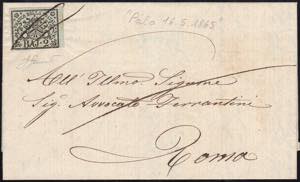 "Palo 16.5.1865"
BAJ. 2
All' Illmo Signore
Sig. Avvocato Ferrantini
Roma